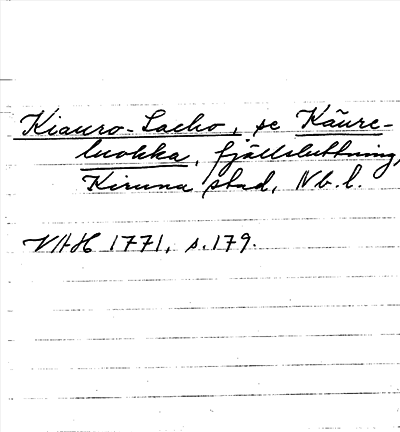 Kiauro-Lacho, se Käure-
luokka, fjällsluttning,
Kiruna stad, Nb.l.
VAH 1771, s.179.